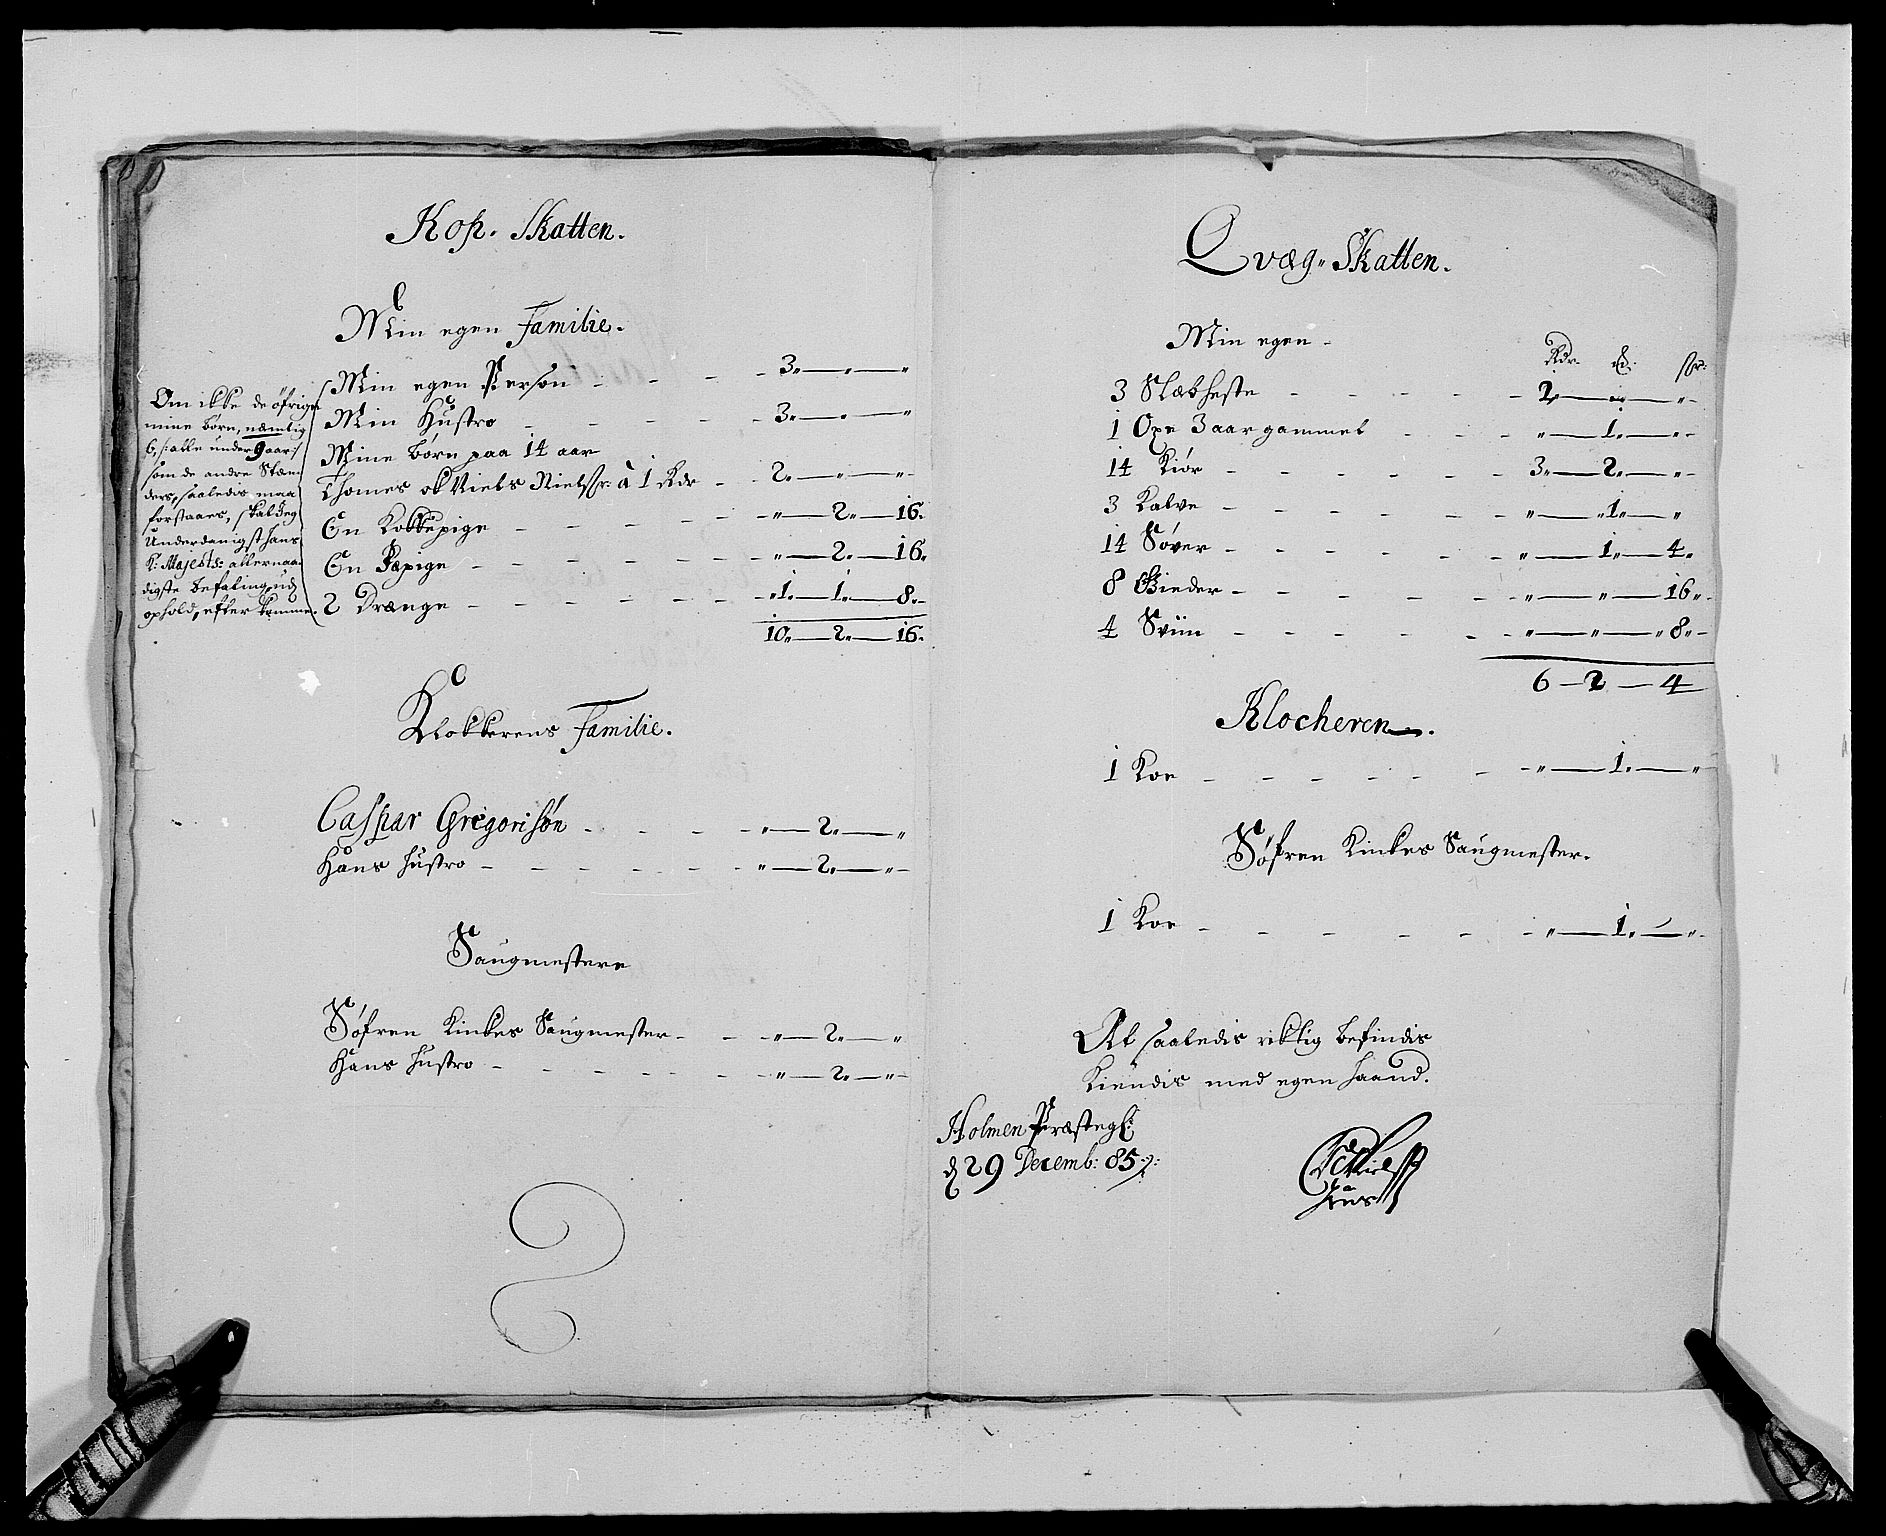 Kop. Skatten.
Min egen Familie.
Min egen Person - - - 3" — " — "
Min Hustro - - - 3" — " — "
Mine børn paa 14 aar
Thomes ok Niels Nielss: à 1 Rdr - - 2" — " — "
En Kokkepige - - - " — 2" — 16"
En Pæpige - - - " — 2" — 16"
2 Drænge - - - "1" — 1" — 8"
10" — 2" — 16"
Om ikke de öfrige
mine börn, næmlig
6, /: alle under 9 aar :/
som de andre Stæn-
ders, saaledis maa
forstaaes, skal Jeg
Underdanigst hans
K: Majests: allernaa-
digste befaling, ud
ophold, efterkomme.
Klokkerens Familie.
Caspar Gregorisøn - - - " — 2" — "
Hans Hustro - - - " — 2" — "
Saugmestere
Søfren Kinkes Saugmester - - " — 2" — "
Hans Hustro - - - " — 2" — "
Qvæg" Skatten.
Min egen -
Rdr. ʒ. sk:
3 Slæbheste - - - 2 — " — "
1 Oxe 3 aar gammel - - - " — 1" — "
14 Kiör - - - 3" — 2" — "
3 Kalve - - - " — "1" — "
14 Søver - - - " — 1" — 4"
8 Gieder - - - " — " — 16"
4 Sviin - - - " — " — "8"
6 — 2 — 4
Klocheren.
1 Koe - - - " — 1" — "
Söfren Kinkes Saugmester.
1 Koe - - - " — 1" — "
At saaledis riktig befindis
Kiendis med egen haand.
Holmen Præsteg:
d 29 Decemb: 85